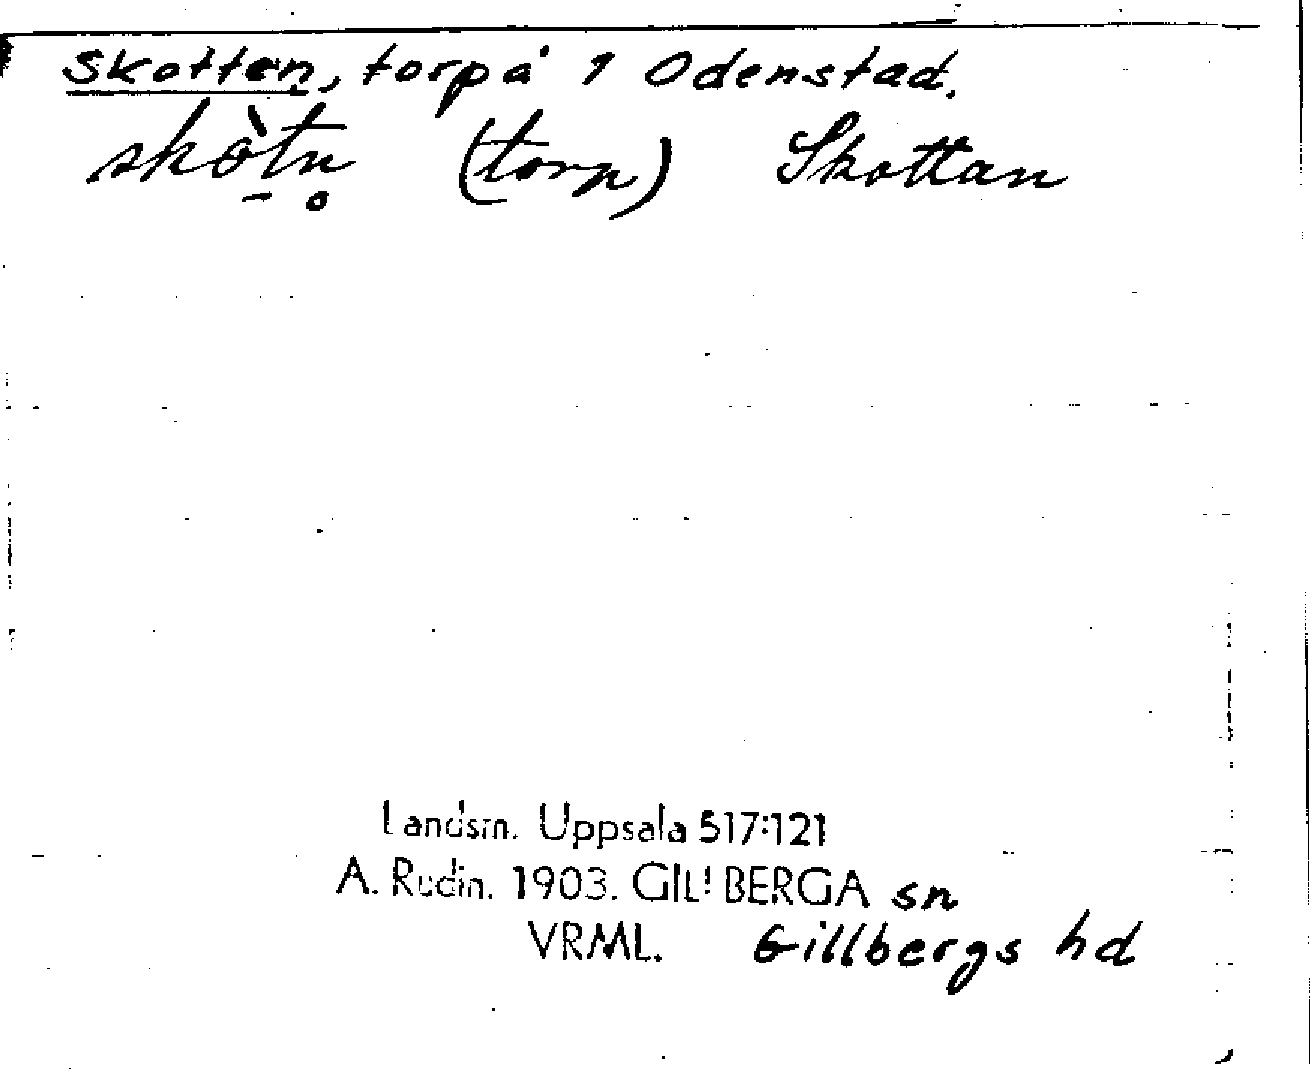 Skotten, torp å 1 Odenstad.
skòtn̥ (torp) Skottan
Landsm. Uppsala 517:121
A. Rudin. 1903. GILLBERGA sn
VRML. Gillbergs hd